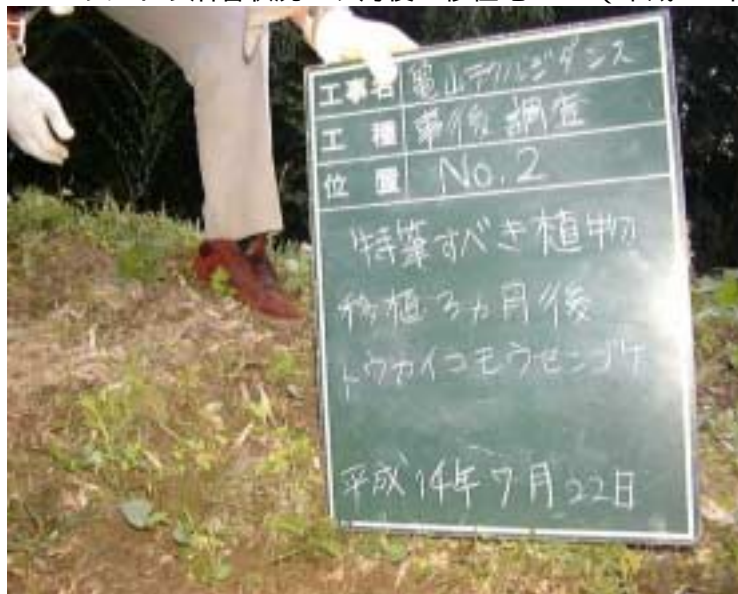 工事名 亀山テクノレジデンス
工種 事後調査
位置 No.2
特筆すべき植物
移植3ヵ月後
トウカイコモウセンゴケ
平成14年7月22日